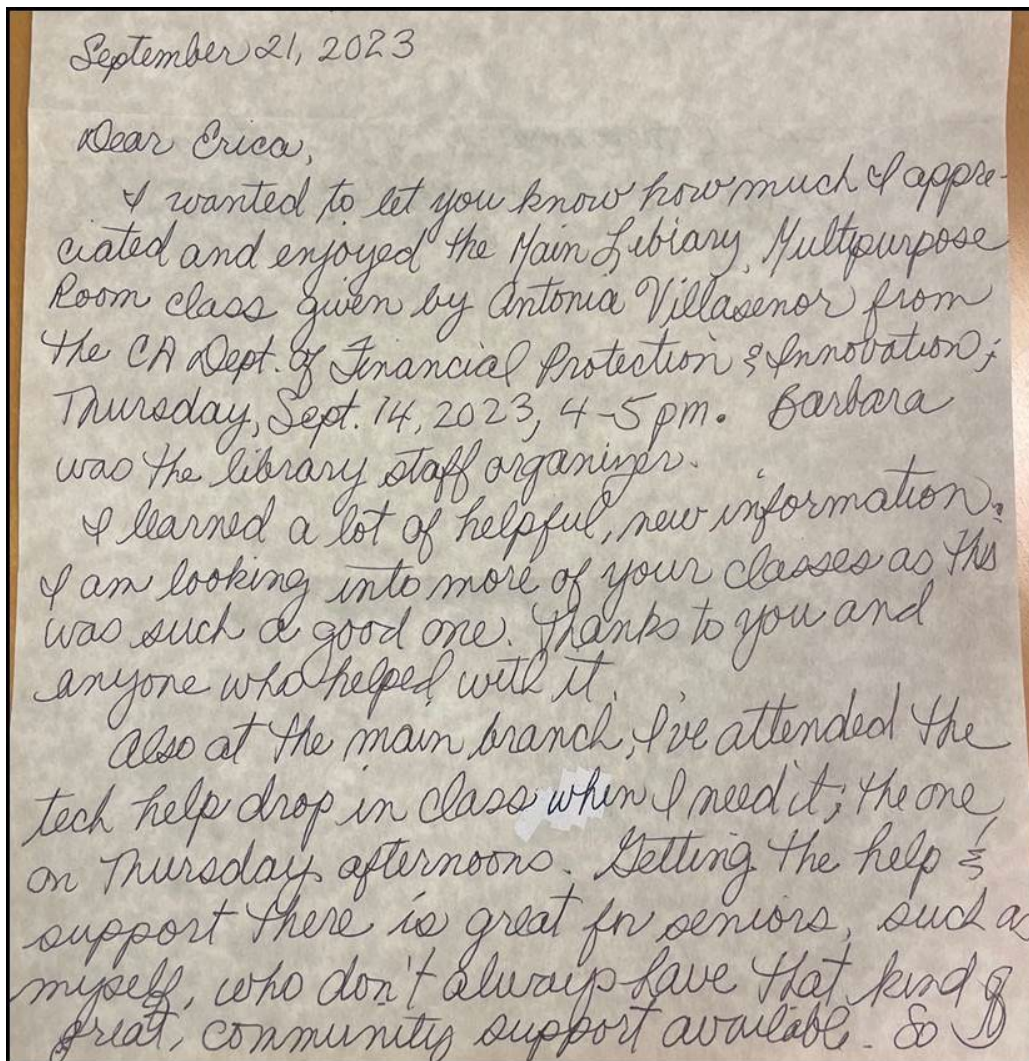 September 21, 2023
Dear Erica,
I wanted to let you know how much I appre-
ciated and enjoyed the Main Library, Multipurpose
Room class given by Antonia Villasenor from
the CA Dept. of Financial Protection & Innovation;
Thursday, Sept. 14, 2023, 4-5 pm. Barbara
was the library staff organizer.
I learned a lot of helpful, new information.
I am looking into more of your classes as this
was such a good one. Thanks to you and
anyone who helped with it.
Also at the main branch, I've attended the
tech help drop in class when I need it; the one
on Thursday afternoons. Getting the help &
support there is great for seniors, such as
myself, who don't always have that kind of
great, community support available. So I